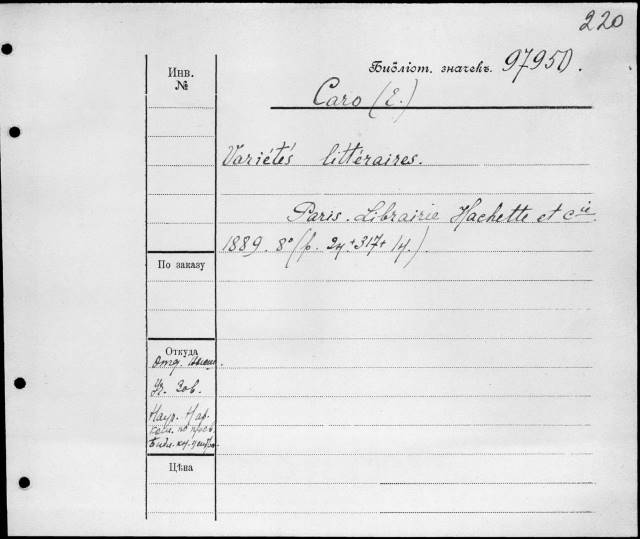 220
Инв.
№
Библіот. значекъ 97950.
Caro (E.)
Variétés littéraires.
Paris. Librairie Hachette et Cie.
1889. 8° (p. 24+317+14.)
По заказу
Откуда
Отд.
Зов.
Цѣна